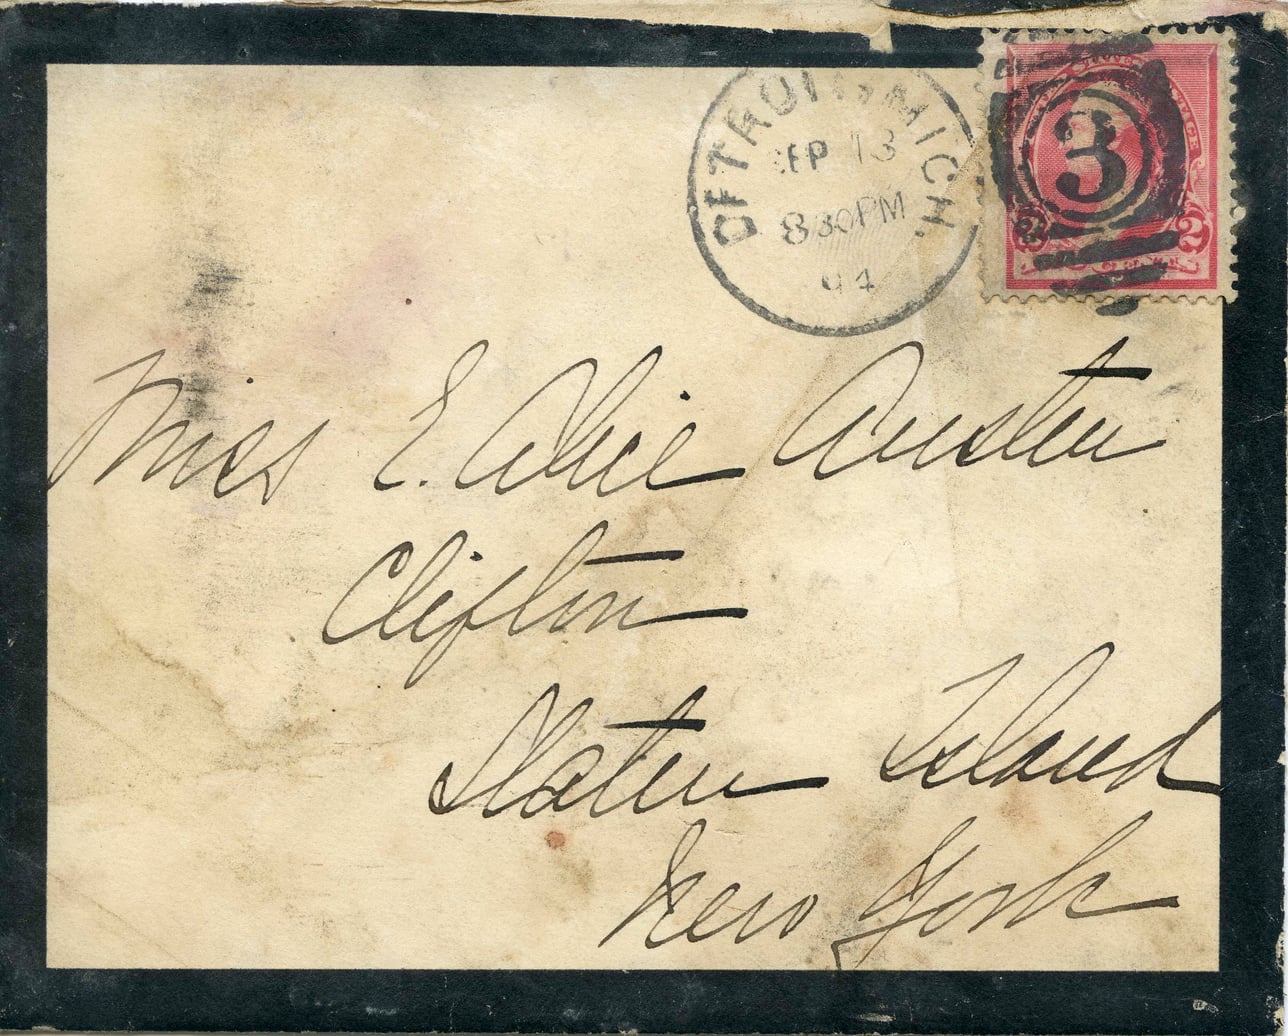 DETROIT, MICH.
SEP 13
830PM
94
3
2 2
Miss E. Alice Austen
Clifton
Staten Island
New York